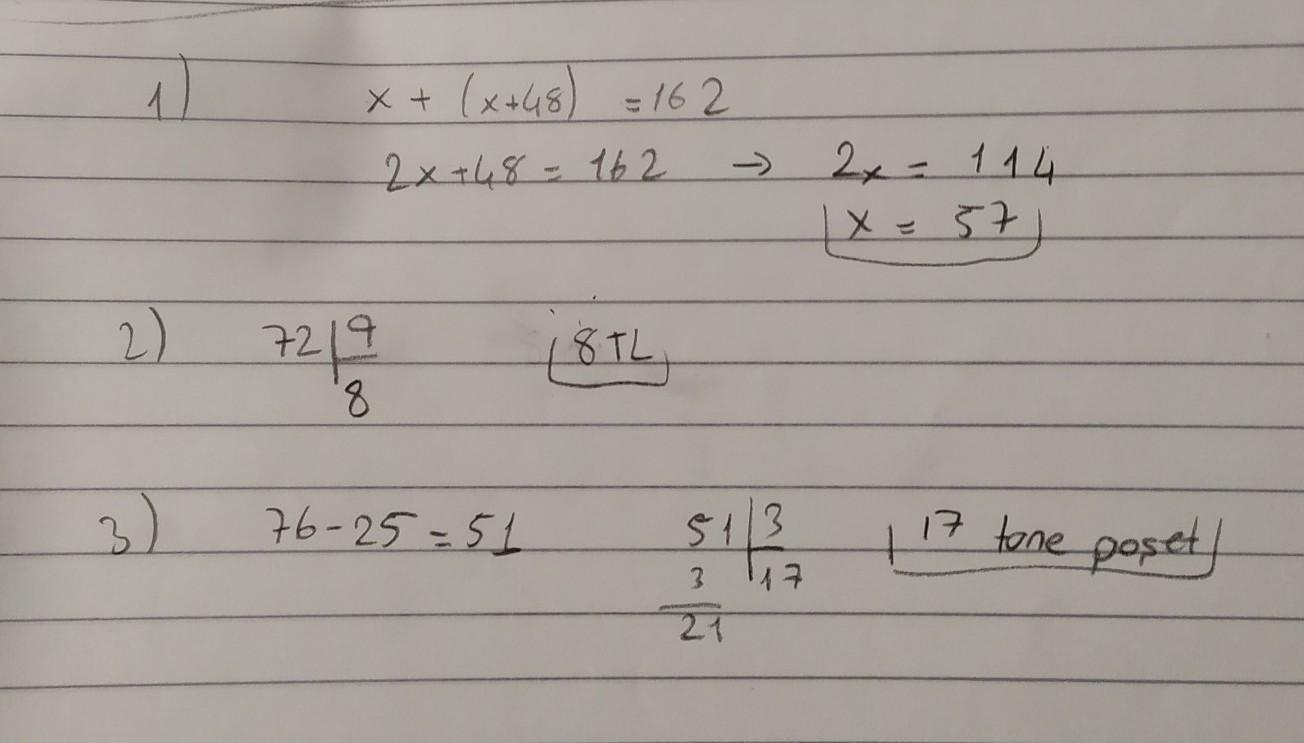 1) x + (x+48) = 162
2x+48 = 162 → 2x = 114
x = 57
2) 72 | 9 8 TL
8
3) 76 - 25 = 51 51 | 3 17 tane poşet
3 17
21